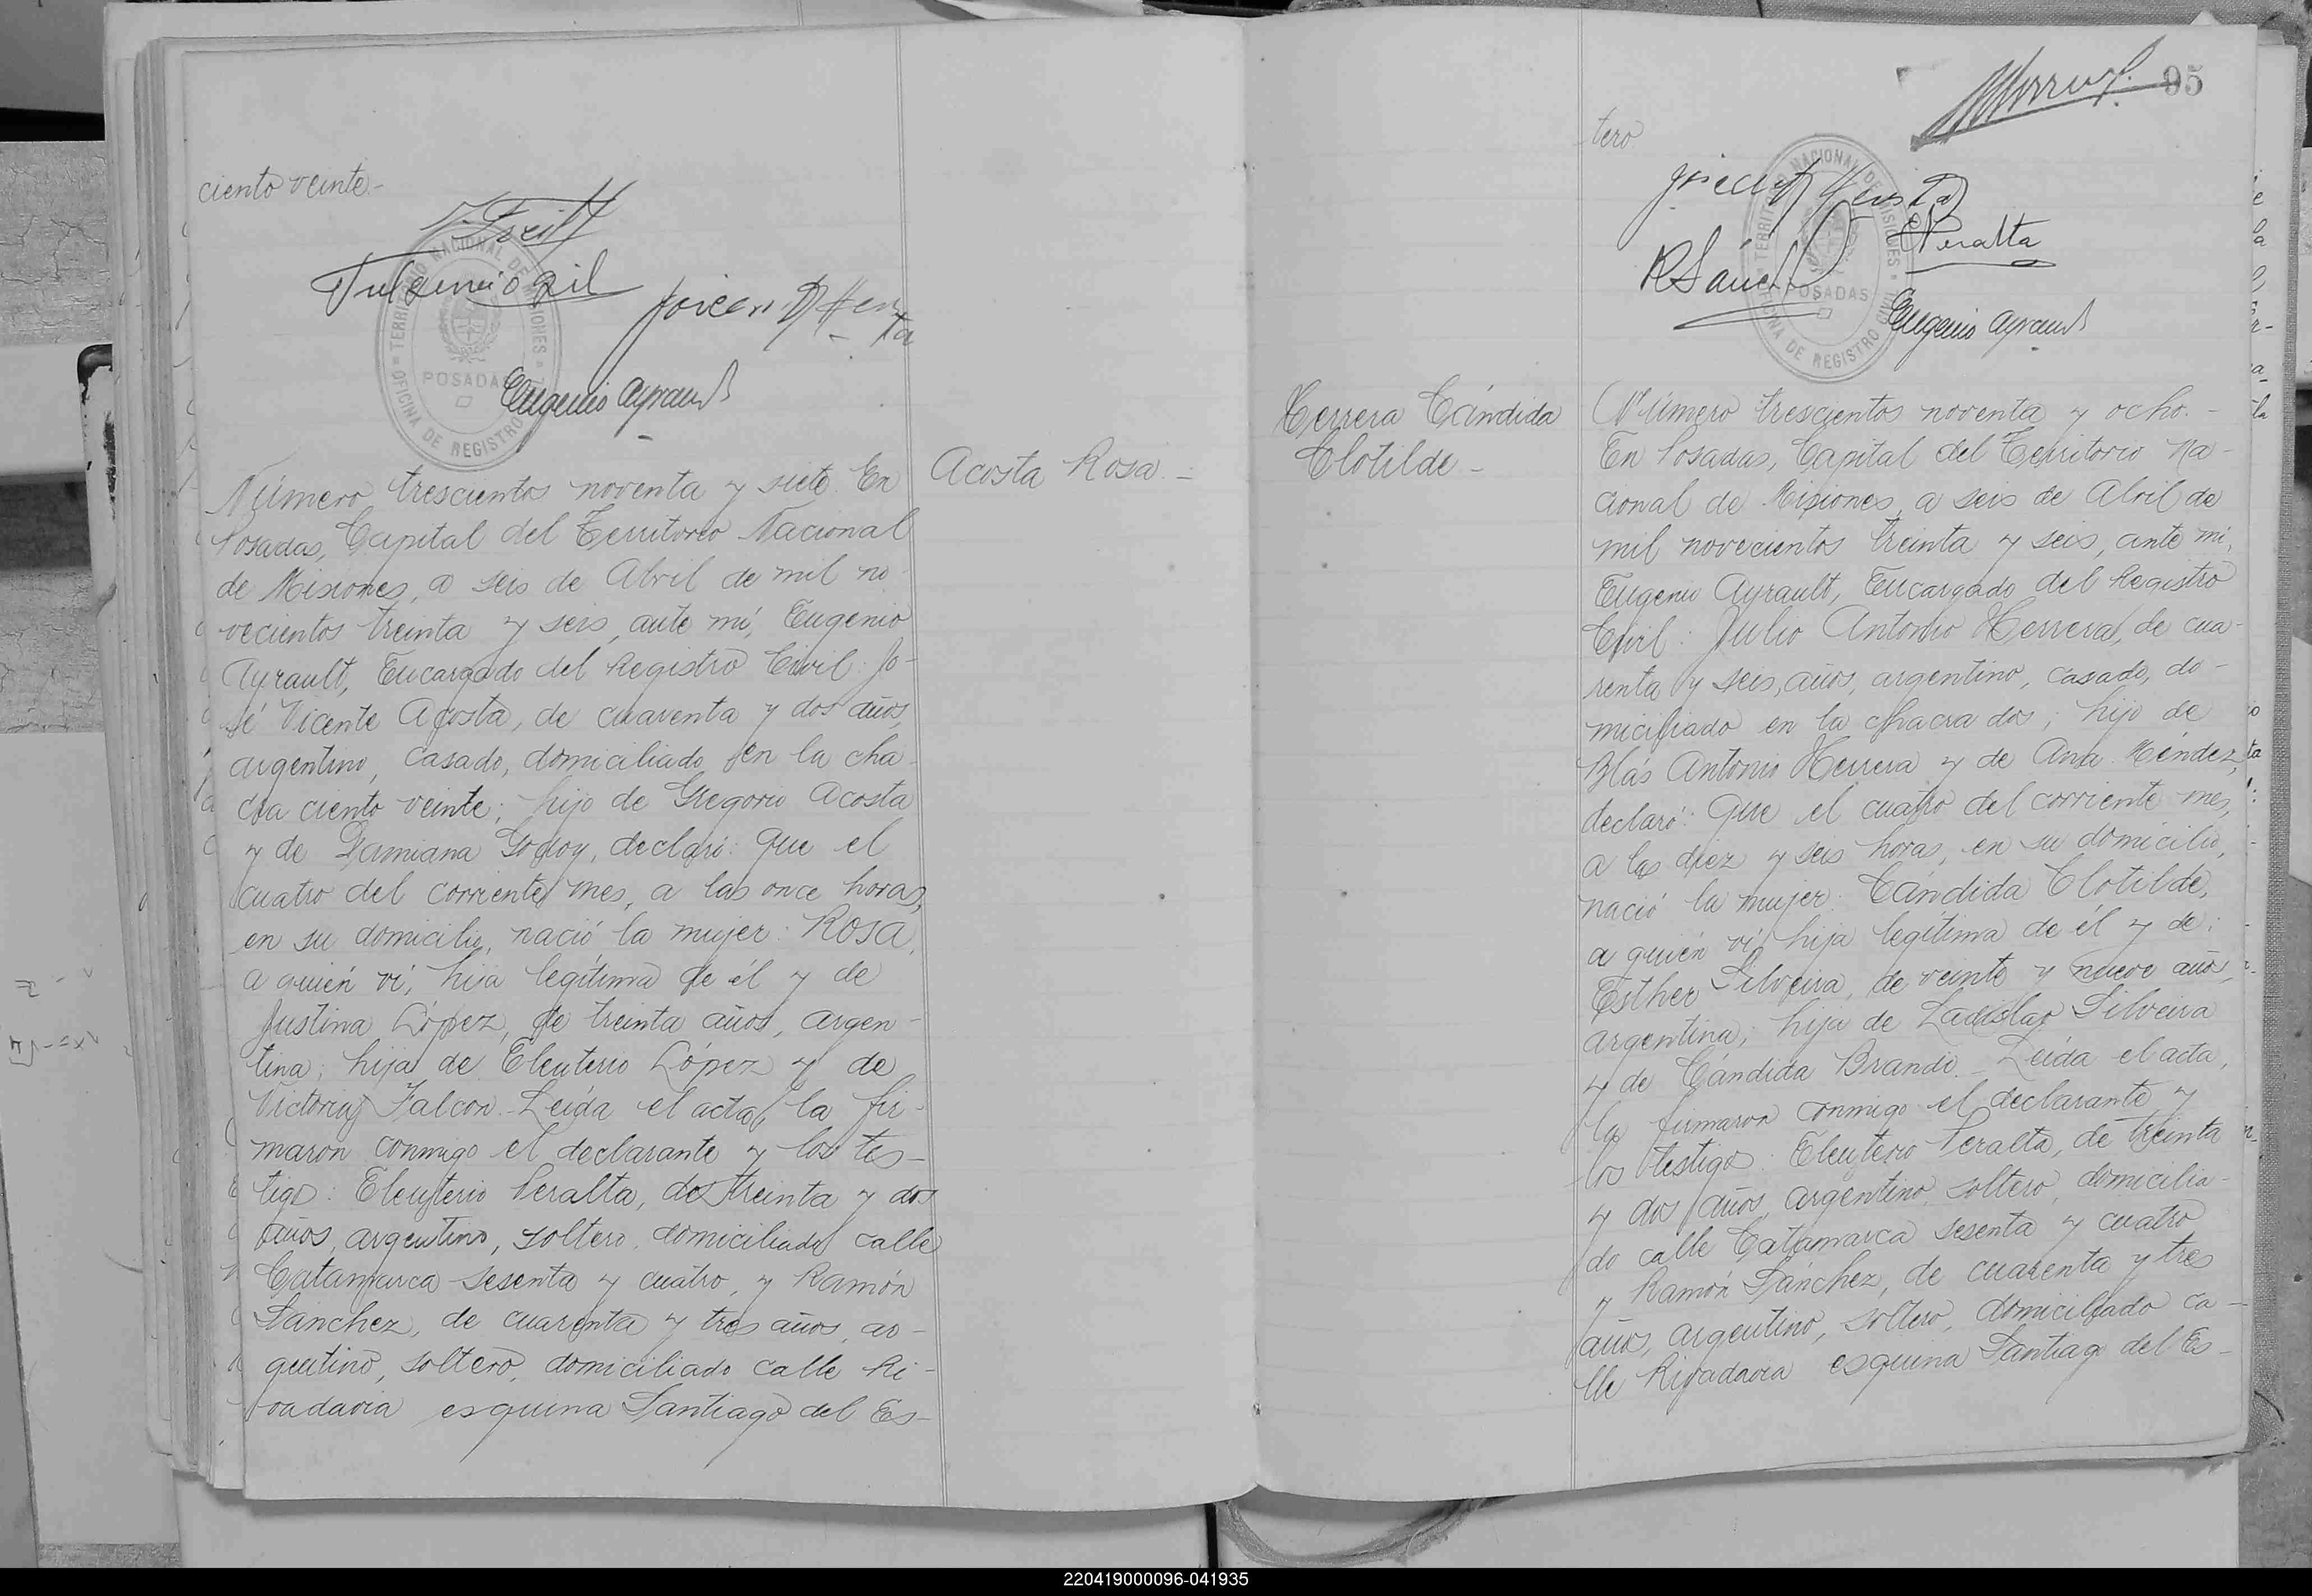 ciento veinte.-
TERRITORIO NACIONAL DE MISIONES
POSADAS
OFICINA DE REGISTRO CIVIL
Eugenio Ayrault
Acosta Rosa.-
Número trescientos noventa y siete. En
Posadas, Capital del Territorio Nacional
de Misiones, a seis de Abril de mil no-
vecientos treinta y seis, ante mí, Eugenio
Ayrault, Encargado del Registro Civil: Jo-
sé Vicente Acosta, de cuarenta y dos años,
argentino, casado, domiciliado en la cha-
cra ciento veinte; hijo de Gregorio Acosta
y de Damiana Godoy, declaró: Que el
cuatro del corriente mes, a las once horas,
en su domicilio, nació la mujer: Rosa,
a quién ví, hija legítima de él y de
Justina López, de treinta años, argen-
tina; hija de Eleuterio López y de
Victoria Falcon.- Leída el acta, la fir-
maron conmigo el declarante y los tes-
tigos: Eleuterio Peralta, de treinta y dos
años, argentino, soltero, domiciliado calle
Catamarca sesenta y cuatro, y Ramón
Sánchez, de cuarenta y tres años, ar-
gentino, soltero, domiciliado calle Ri-
vadavia esquina Santiago del Es-
95
tero
TERRITORIO NACIONAL DE MISIONES
POSADAS
OFICINA DE REGISTRO CIVIL
EPeralta
RSánchez
Eugenio Ayrault
Herrera Cándida
Clotilde-
Número trescientos noventa y ocho.-
En Posadas, Capital del Territorio Na-
cional de Misiones, a seis de Abril de
mil novecientos treinta y seis, ante mí,
Eugenio Ayrault, Encargado del Registro
Civil: Julio Antonio Herrera, de cua-
renta y seis, años, argentino, casado, do-
miciliado en la chacra dos; hijo de
Blás Antonio Herrera y de Ana Méndez,
declaró: Que el cuatro del corriente mes,
a las diez y seis horas, en su domicilio,
nació la mujer: Cándida Clotilde,
a quién ví, hija legítima de él y de:
Esther Silveira, de veinte y nueve años,
argentina; hija de Ladislao Silveira
y de Cándida Brando.- Leída el acta,
la firmaron conmigo el declarante y
los testigos: Eleuterio Peralta, de treinta
y dos años, argentino, soltero, domicilia-
do calle Catamarca sesenta y cuatro
y Ramón Sánchez, de cuarenta y tres
años, argentino, soltero, domiciliado ca-
lle Rivadavia esquina Santiago del Es-
220419000096-041935